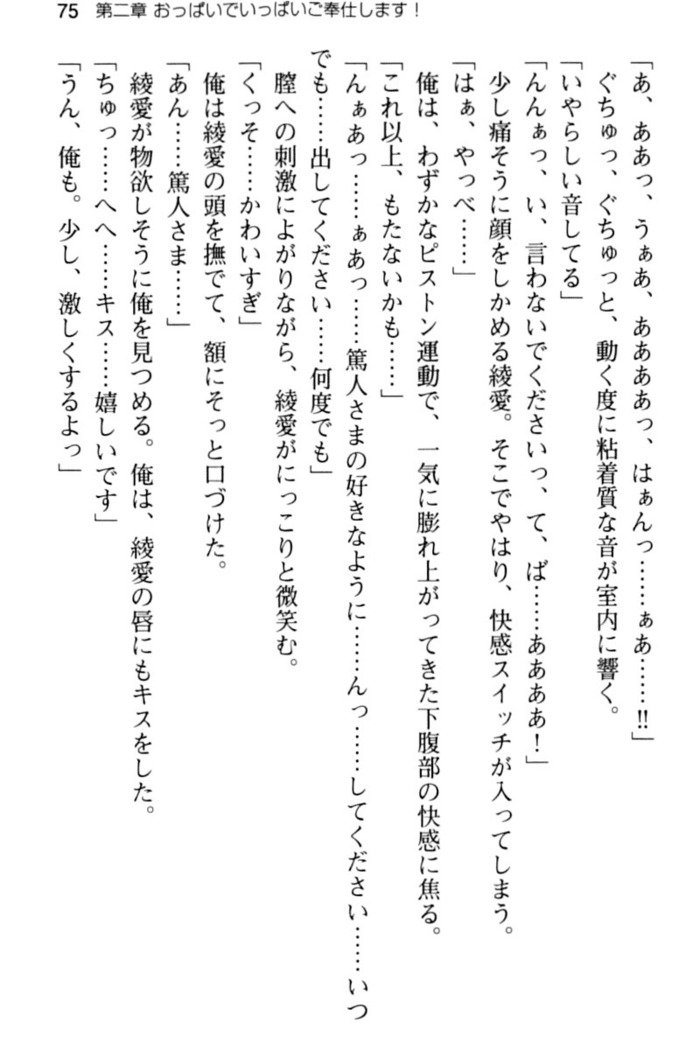 75 第二章 おっぱいでいっぱいご奉仕します！
「あ、ああっ、うぁあ、ああああっ、はぁんっ……ぁあ……!!」
ぐちゅっ、ぐちゅっと、動く度に粘着質な音が室内に響く。
「いやらしい音してる」
「んんぁっ、い、言わないでくださいっ、て、ば……ああああ！」
少し痛そうに顔をしかめる綾愛。そこでやはり、快感スイッチが入ってしまう。
「はぁ、やっべ……」
俺は、わずかなピストン運動で、一気に膨れ上がってきた下腹部の快感に焦る。
「これ以上、もたないかも……」
「んぁあっ……ぁあっ……篤人さまの好きなように……んっ……してください……いつ
でも……出してください……何度でも」
膣への刺激によがりながら、綾愛がにっこりと微笑む。
「くっそ……かわいすぎ」
俺は綾愛の頭を撫でて、額にそっと口づけた。
「あん……篤人さま……」
綾愛が物欲しそうに俺を見つめる。俺は、綾愛の唇にもキスをした。
「ちゅっ……へへ……キス……嬉しいです」
「うん、俺も。少し、激しくするよっ」